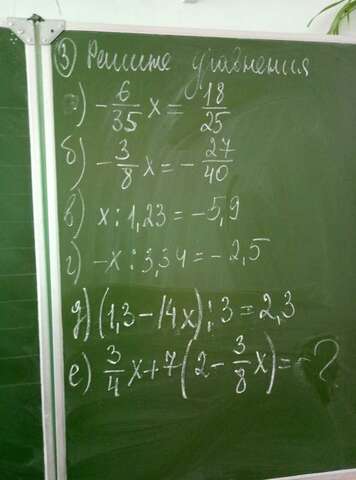 ③ Решите уравнения
а) -6/35 x = 18/25
б) -3/8 x = - 27/40
в) x : 1,23 = -5,9
г) -x : 3,34 = - 2,5
д) (1,3 - 14x) : 3 = 2,3
е) 3/4 x + 7 (2 - 3/8 x) = - ?